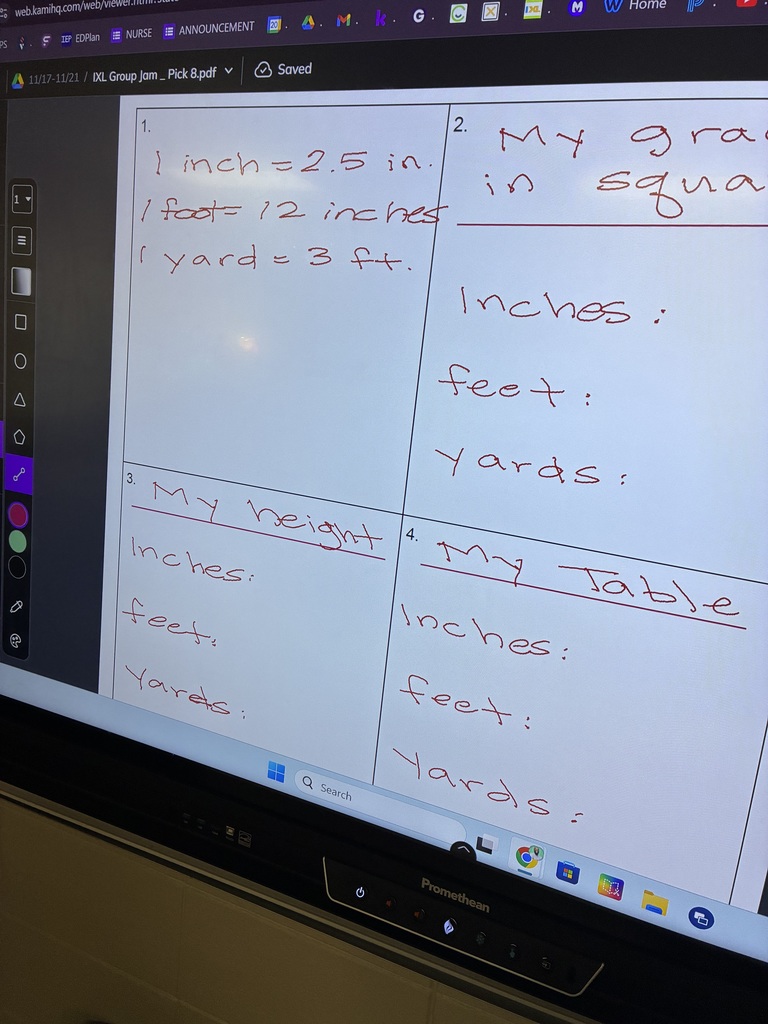 web.kamihq.com/web/viewer.html
EDPlan
NURSE
ANNOUNCEMENT
Home
11/17-11/21 / IXL Group Jam _ Pick 8.pdf
Saved
1.
1 inch = 2.5 in.
1 foot = 12 inches
1 yard = 3 ft.
2. My gra
in squa
Inches:
feet:
yards:
3. My height
Inches:
feet:
Yards:
4. My Table
Inches:
feet:
Yards:
Search
Promethean